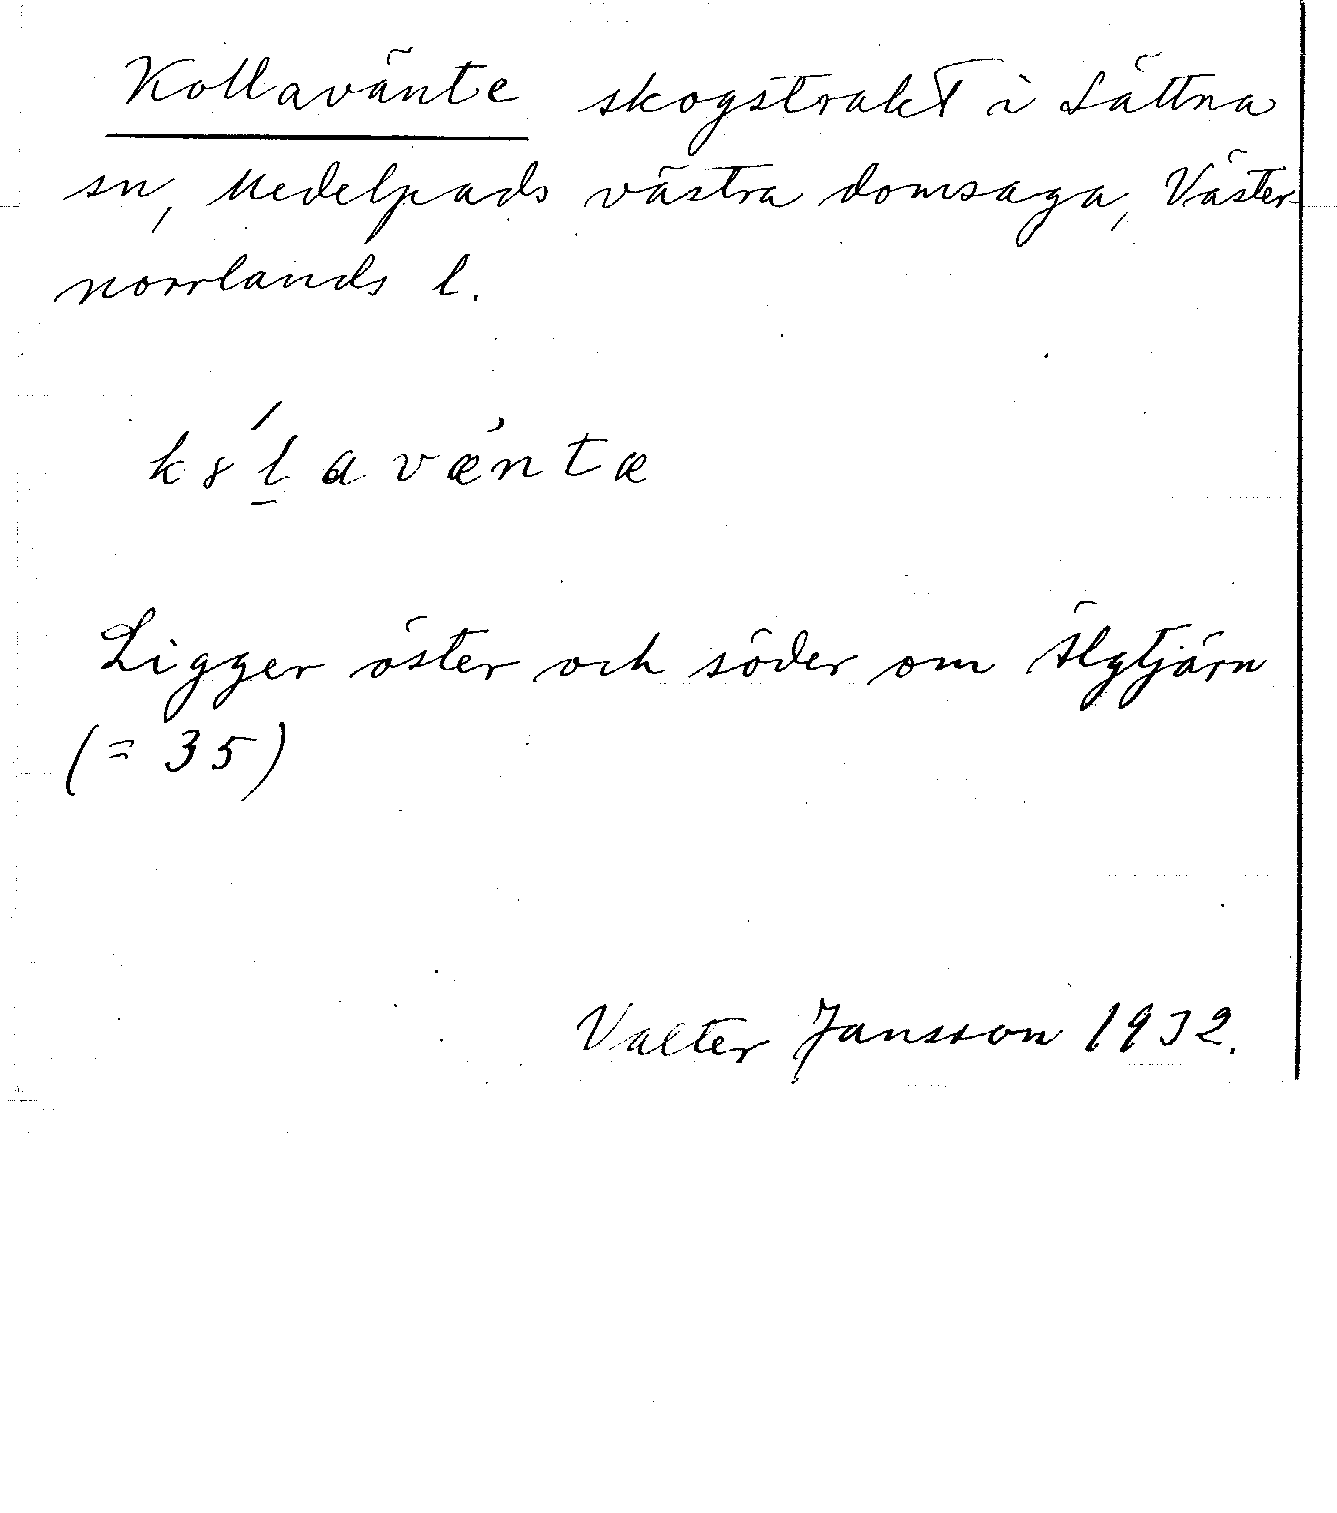 Kollavänte skogstrakt i Sättna
sn, Medelpads västra domsaga, Väster-
norrlands l.
k8́l̲avæ̀ntæ
Ligger öster och söder om Älgtjärn
(= 35)
Valter Jansson 1932.